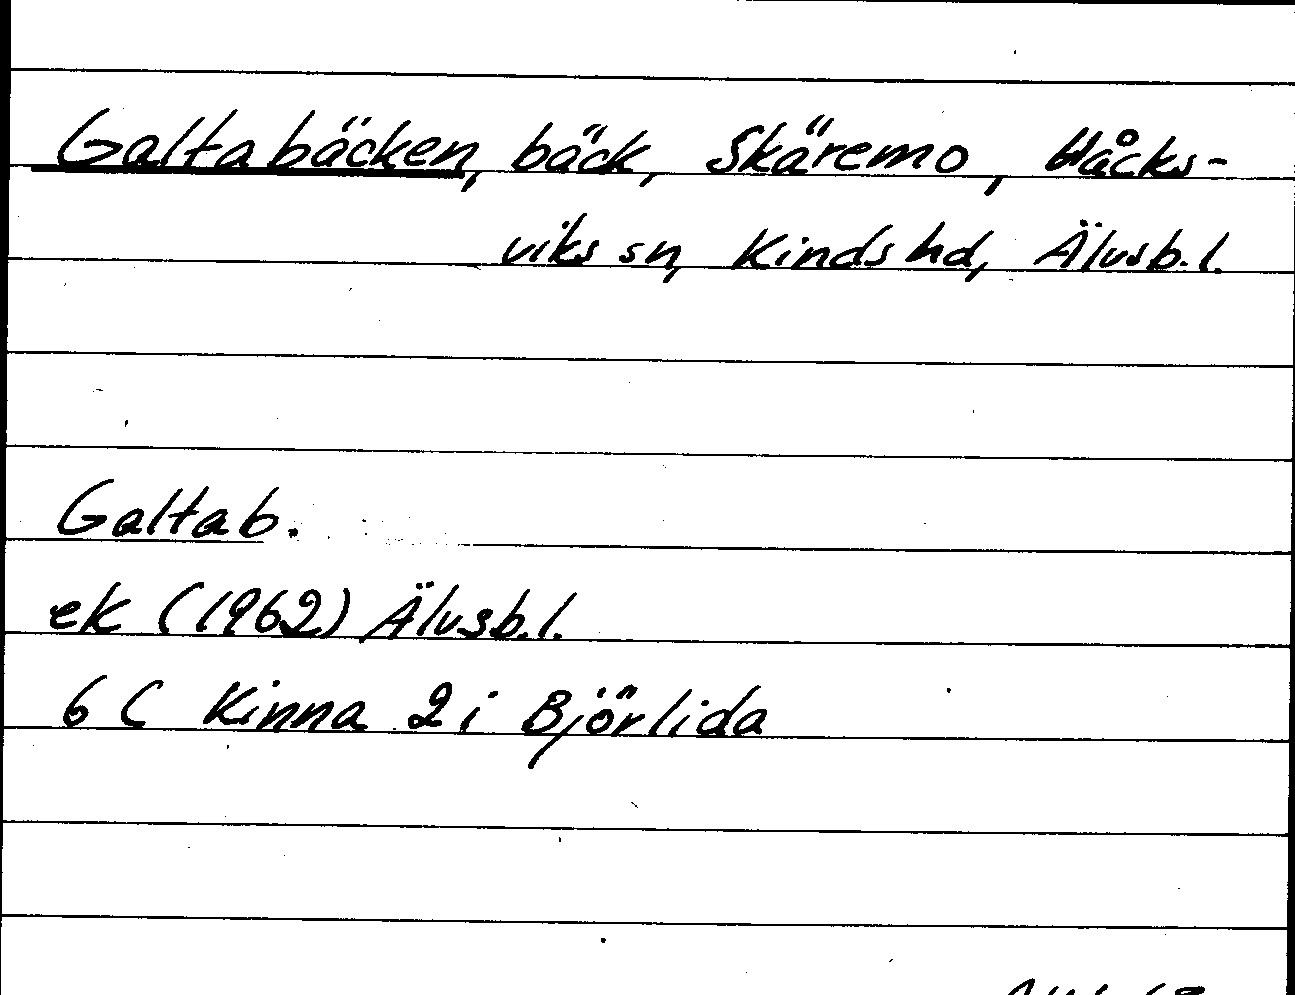 Galtabäcken, bäck, Skäremo, Håcks-
viks sn, Kinds hd, Älvsb. l.
Galtab.
ek (1962) Älvsb. l.
6 C Kinna 2 i Björlida